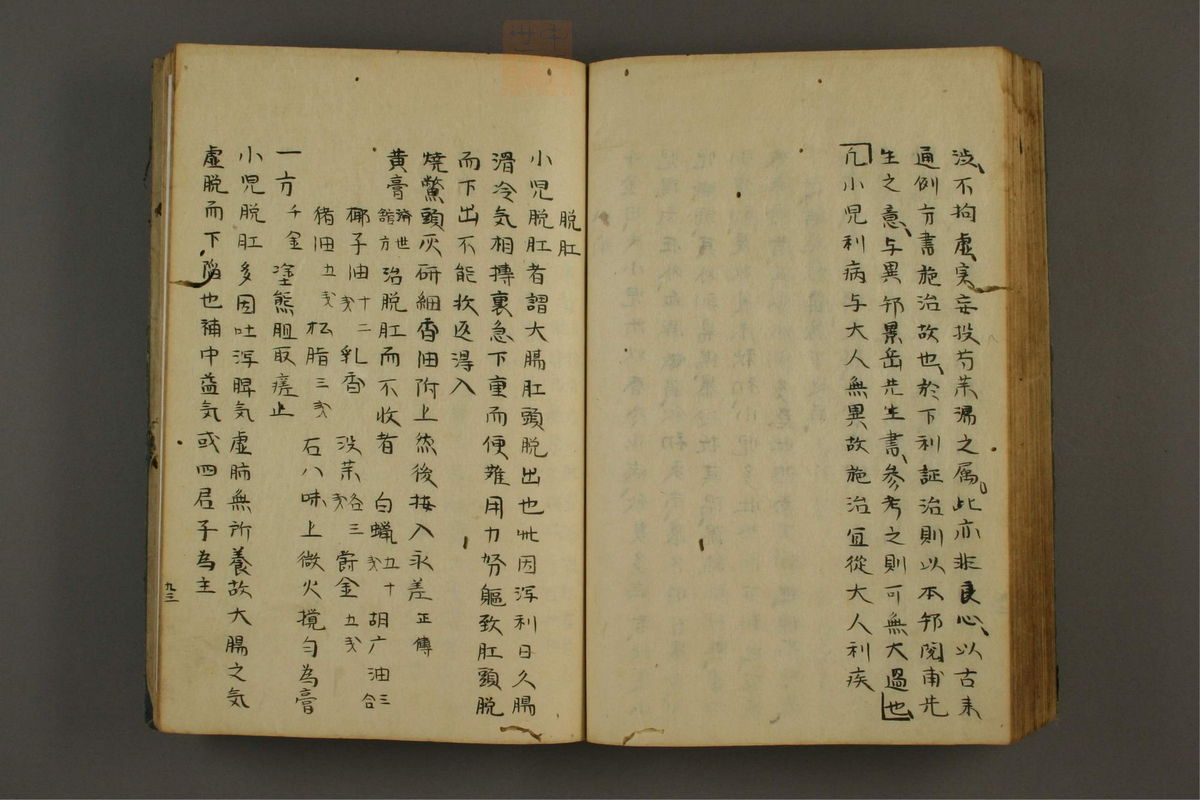 渋不拘虚実妄投芍茱湯之属此亦非良心以古来
通例方書施治故也於下利証治則以本邦閲甫先
生之意与異邦景岳先生書参考之則可無大過也
凡小児利病与大人無異故施治宜從大人利疾
脱肛
小児脱肛者謂大腸肛頭脱出也此因泻利日久腸
滑冷気相搏裏急下重而便难用力努軀致肛頭脱
而下出不能收返得入
燒鱉頭灰研細香油附上然後按入永差 正傳
黄膏 済世 方 治脱肛而不收者 白蝋五十戔 胡广油三合
椰子油十二戔 乳香 没茉各三戔 欝金五戔
猪油五戔 松脂三戔 右八味上微火攪匀為膏
一方 千金 塗熊胆取瘥止
小児脱肛多因吐泻脾気虚肺無所養故大腸之気
虚脱而下陷也補中益気或四君子為主
九三